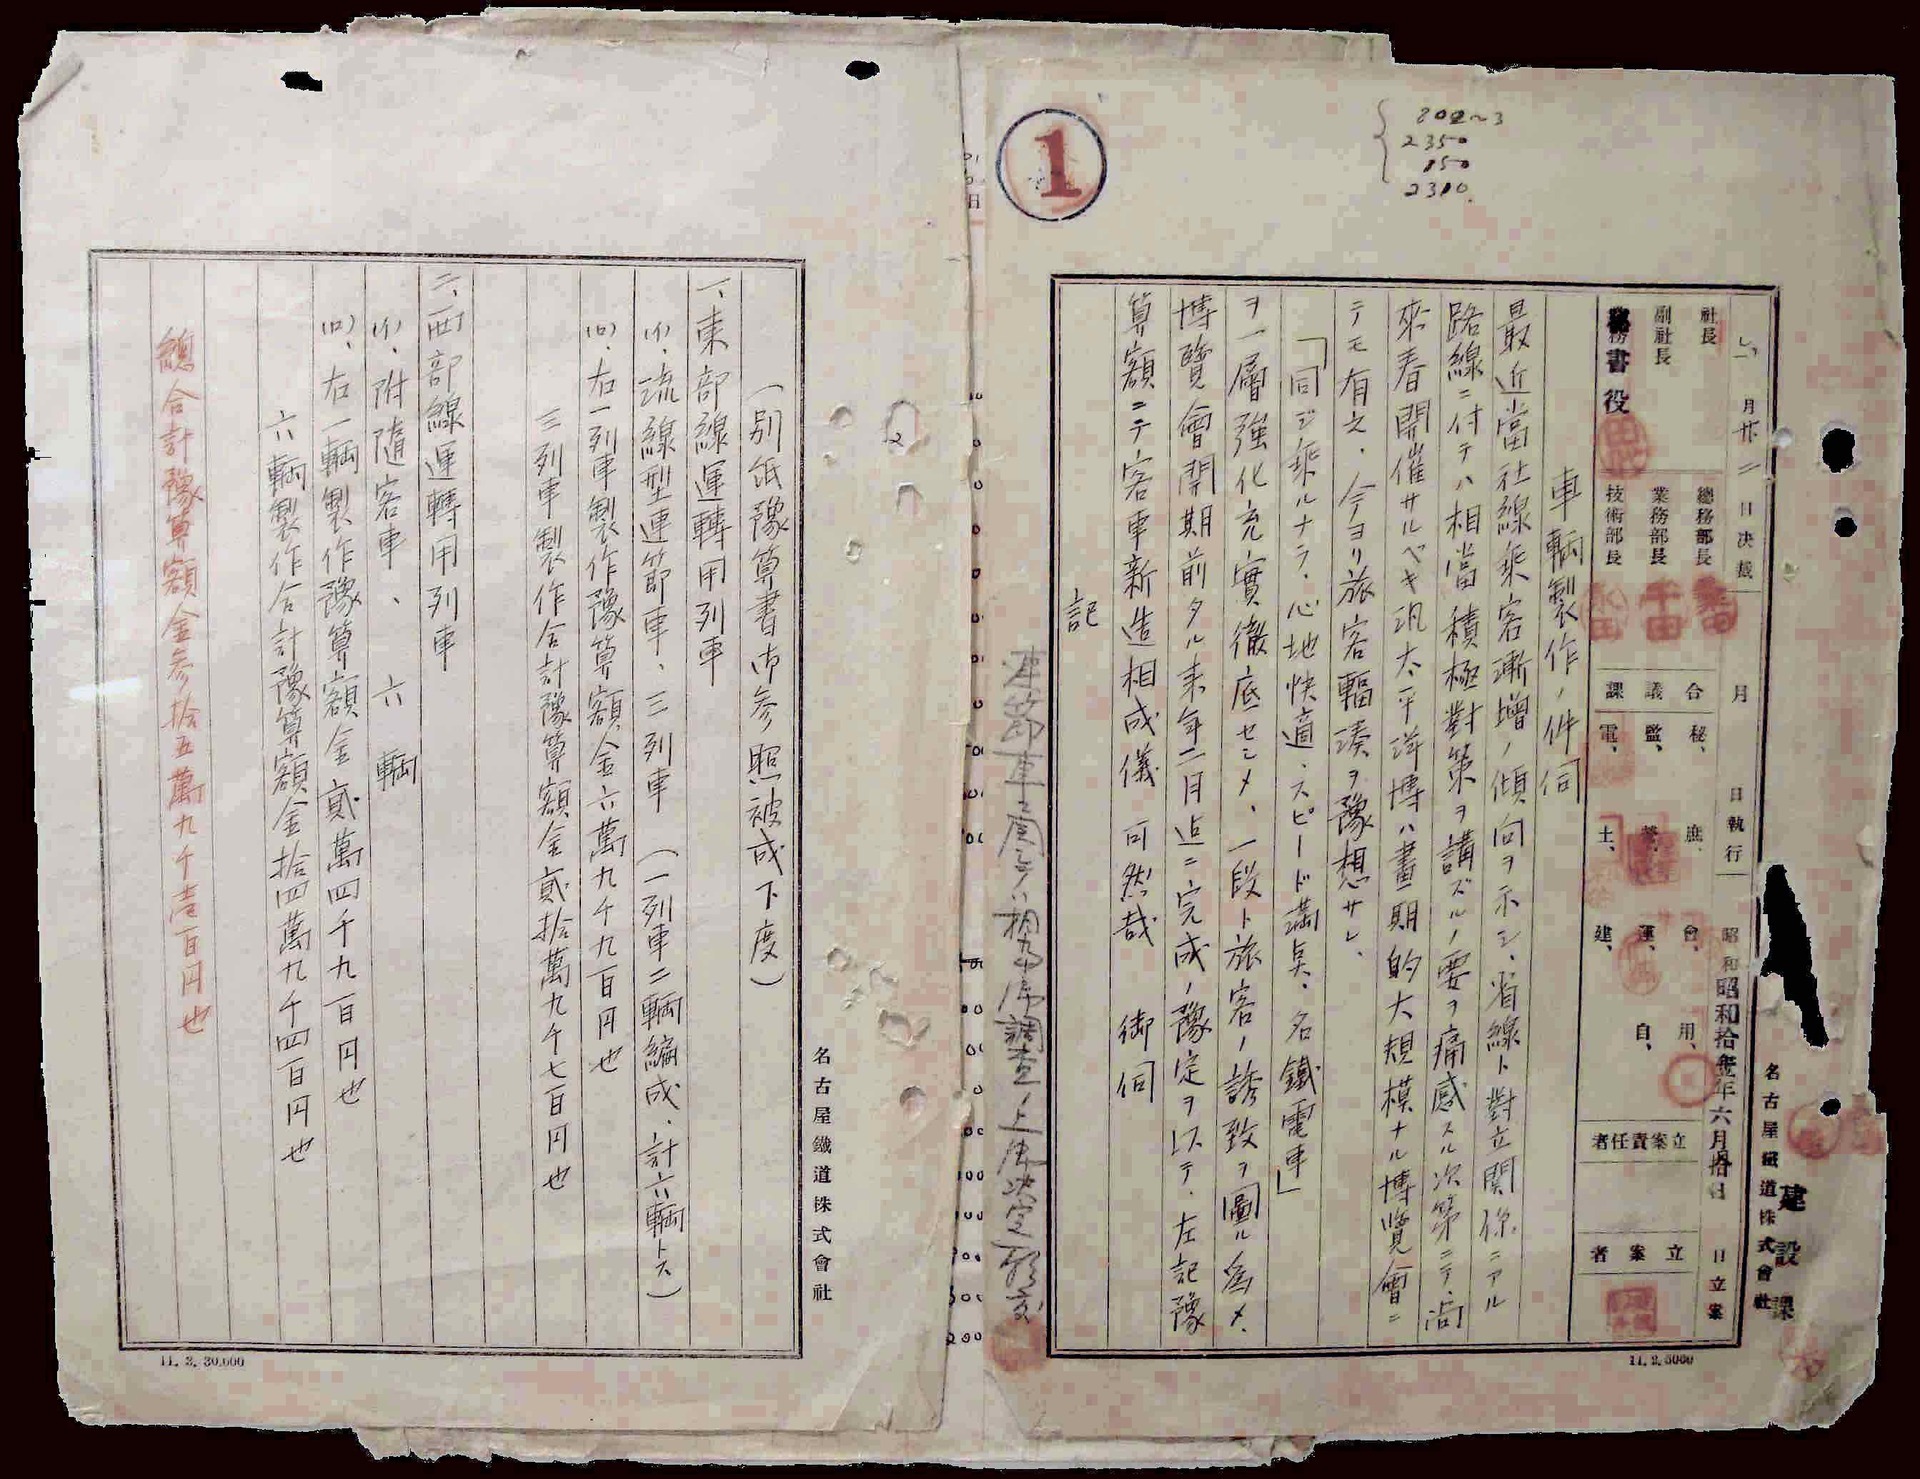 802~3
2350
850
2300.
1
名古屋鐵道株式會社
建設課
月廿二日決裁
月
日執行
昭和
昭和拾壹年六月拾日
日立案
社長
副社長
書役
總務部長
業務部長
技術部長
合議課
秘、
庶、
會、
用、
監、
營、
運、
自、
電、
土、
建、
立案責任者
立案者
車輛製作ノ件伺
最近當社線乘客漸增ノ傾向ヲ示シ、省線ト對立関係ニアル
路線ニ付テハ相當積極對策ヲ講ズルノ要ヲ痛感スル次第ニテ、尚
來春開催サルベキ汎太平洋博ハ畫期的大規模ナル博覽會ニ
テモ有之、今ヨリ旅客輻湊ヲ豫想サレ、
「同ジ乘ルナラ、心地快適、スピード満点、名鐵電車」
ヲ一層強化充實徹底セシメ、一段ト旅客ノ誘致ヲ圖ル爲メ、
博覽會開期前タル来年二月迄ニ完成ノ豫定ヲ以テ、左記豫
算額ニテ客車新造相成儀 可然哉 御伺
記
11. 2. 5000
連節車ニ
調査ノ上
決定
名古屋鐵道株式會社
(別紙豫算書御参照被成下度)
一、東部線運轉用列車
(イ)、流線型連節車、三列車 (一列車二輛編成、計六輛トス)
(ロ)、右一列車製作豫算額金六萬九千九百円也
三列車製作合計豫算額金貳拾萬九千七百円也
二、西部線運轉用列車
(イ)、附隨客車、六輛
(ロ)、右一輛製作豫算額金貳萬四千九百円也
六輛製作合計豫算額金拾四萬九千四百円也
總合計豫算額金參拾五萬九千壹百円也
11. 2. 30,000